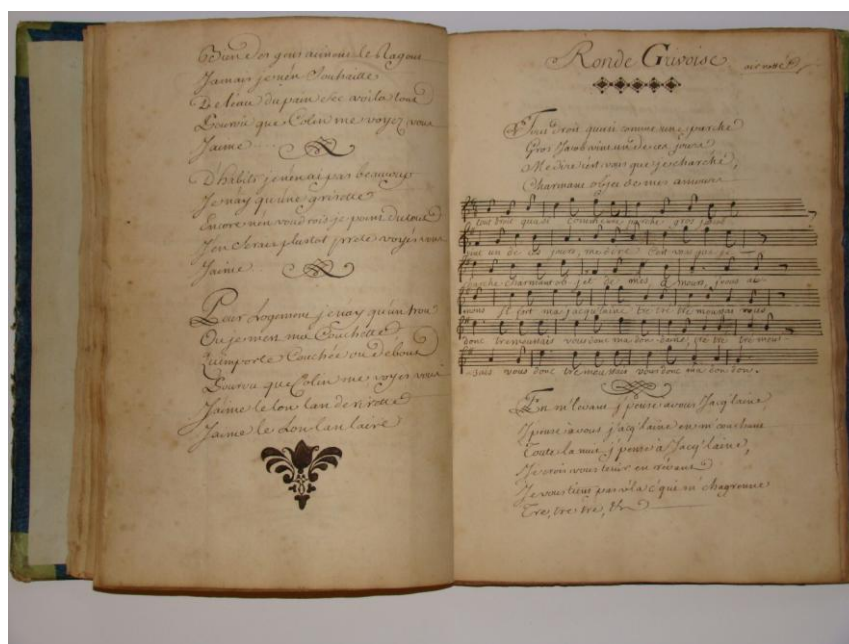 Bien des gens aiment le Ragout
Jamais je n'en Souhaitte
De l'eau du pain sec voila tout
Pourvu que Colin me voyez vous
Jaime
D'habits je n'en ai pas beaucoup
Je n'ay qu'une grisette
Encore n'en voudrois je point du tout
J'en Serais plustot prete voyés vous
Jaime
Pour Logement je n'ay qu'un trou
Ou je mets ma Couchette
Qu'importe Couchée ou debout
Pourvu que Colin me voyez vous
Jaime le lon lan derirette
Jaime le Lon lan laire
Ronde Grivoise
air notté
Tout droit quasi comme une parche
Gros Jacob vint un de ces jours
Me dire c'est vous que je charche,
Charmant objet de mes amours
tout droit quasi comme une parche gros jacob
vint un de ces jours, me dire c'est vous que je
charche charmant ob jet de mes, amours,
nous il fort ma jacqu'laine tre tre tre mous vous
donc tremoussais vous donc ma don daine, tre tre tre mous-
sais vous donc tre mous vous donc ma don don.
En m'levant j'pense a vous Jacq'laine,
J'pense a vous jacq'laine en m'couchant
Toute la nuit j'pense à Jacq'laine,
Je crois vous tenir en rêvant
Je vous tiens pas v'la c'qui m'chagreene
Tre, tre tre,